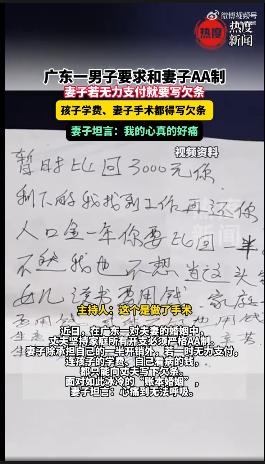 微博视频号
热度
热度新闻
广东一男子要求和妻子AA制
妻子若无力支付就要写欠条
孩子学费、妻子手术都得写欠条
妻子坦言：我的心真的好痛
视频资料
暂时比回3000元你
剩下的我找到工作再还你
人口金一年你要比回一半
不然我也不想
女儿读书要用钱
主持人：这个是做了手术
近日，在广东一对夫妻的婚姻中，
丈夫坚持家庭所有开支必须严格AA制。
妻子除承担自己的一半开销外，若一时无力支付，
连孩子的学费、自己看病的钱，
都只能向丈夫写下欠条。
面对如此冰冷的“账本婚姻”，
妻子坦言：心痛到无法呼吸。